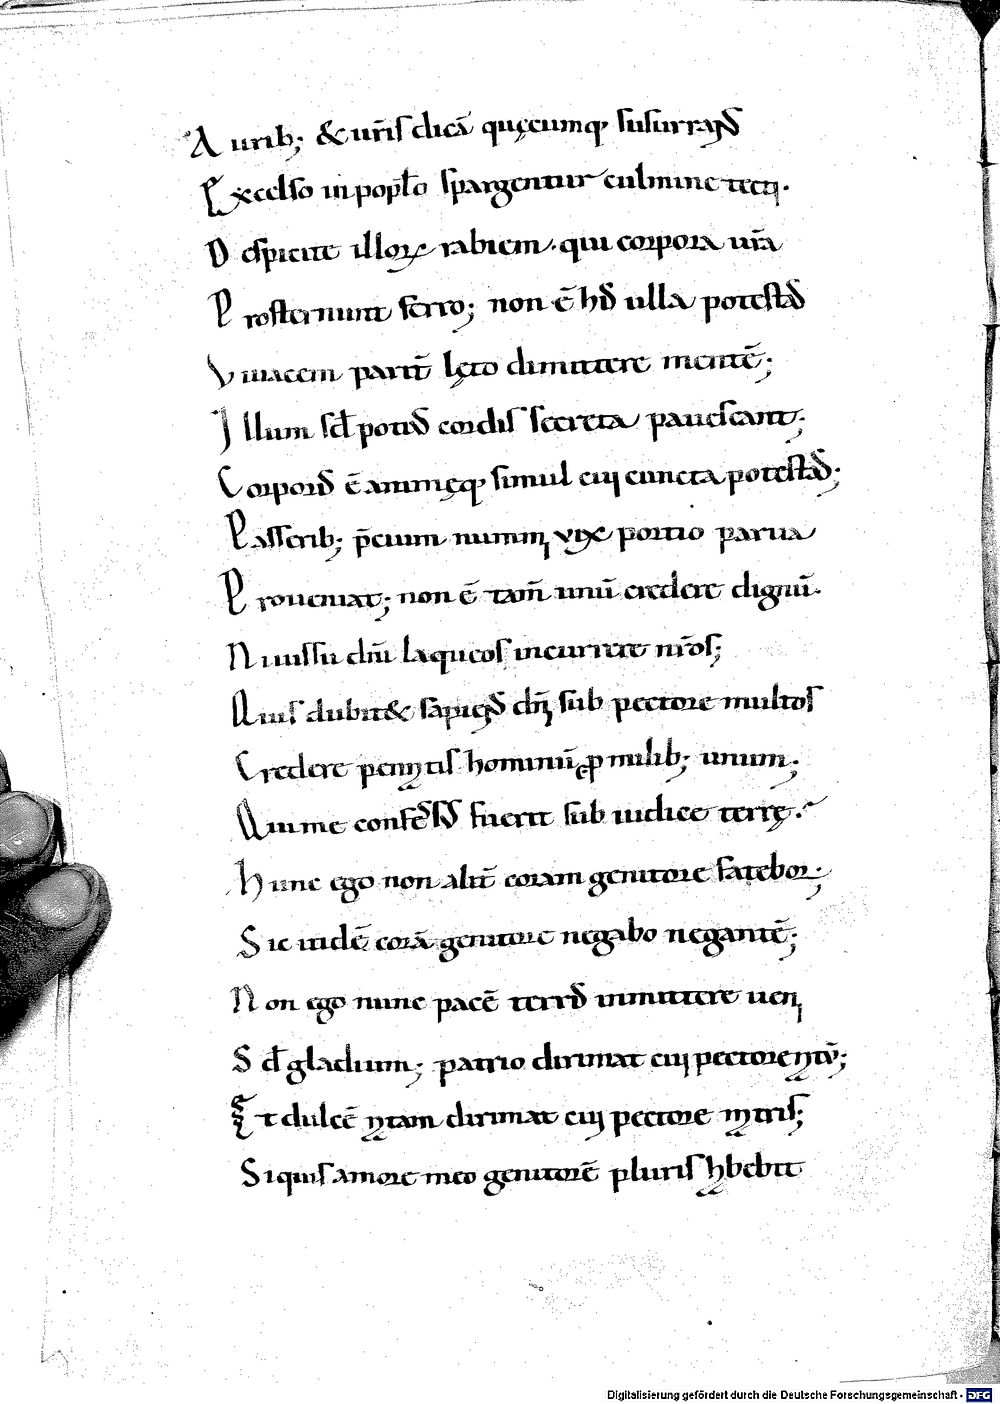 Aurib; & ur̄is dicā quęcumq; susurrans
Excelso in poplo spargentur culmine tecti.
Despicite illoꝝ rabiem. qui corpora ur̄a
Prosternunt ferro; non ē his ulla potestas
Viuacem parit̄ lęto dimittere mentē;
Illum sed potius cordis secreta pauescant;
Corporis ē animęq; simul cui cuncta potestas;
Passerib; p̄cium nummi vix portio parua
Proueniat; non ē tam̄ unū credere dignū.
Niuissu dn̄i laqueos incurrere nr̄os;
Quis dubit& sapiens dn̄i sub pectore multos
Credere penitus hominū p milib; unum;
Qui me confessus fuerit sub iudice terrę.
Hunc ego non alit̄ coram genitore fatebor;
Sic itidē corā genitore negabo negantē;
Non ego nunc pacē terris inmittere ueni
Sed gladium; patrio dirimat cui pectore natū;
Et dulcē natam dirimat cui pectore matris;
Si quis amore meo genitorē pluris habebit
Digitalisierung gefördert durch die Deutsche Forschungsgemeinschaft - DFG